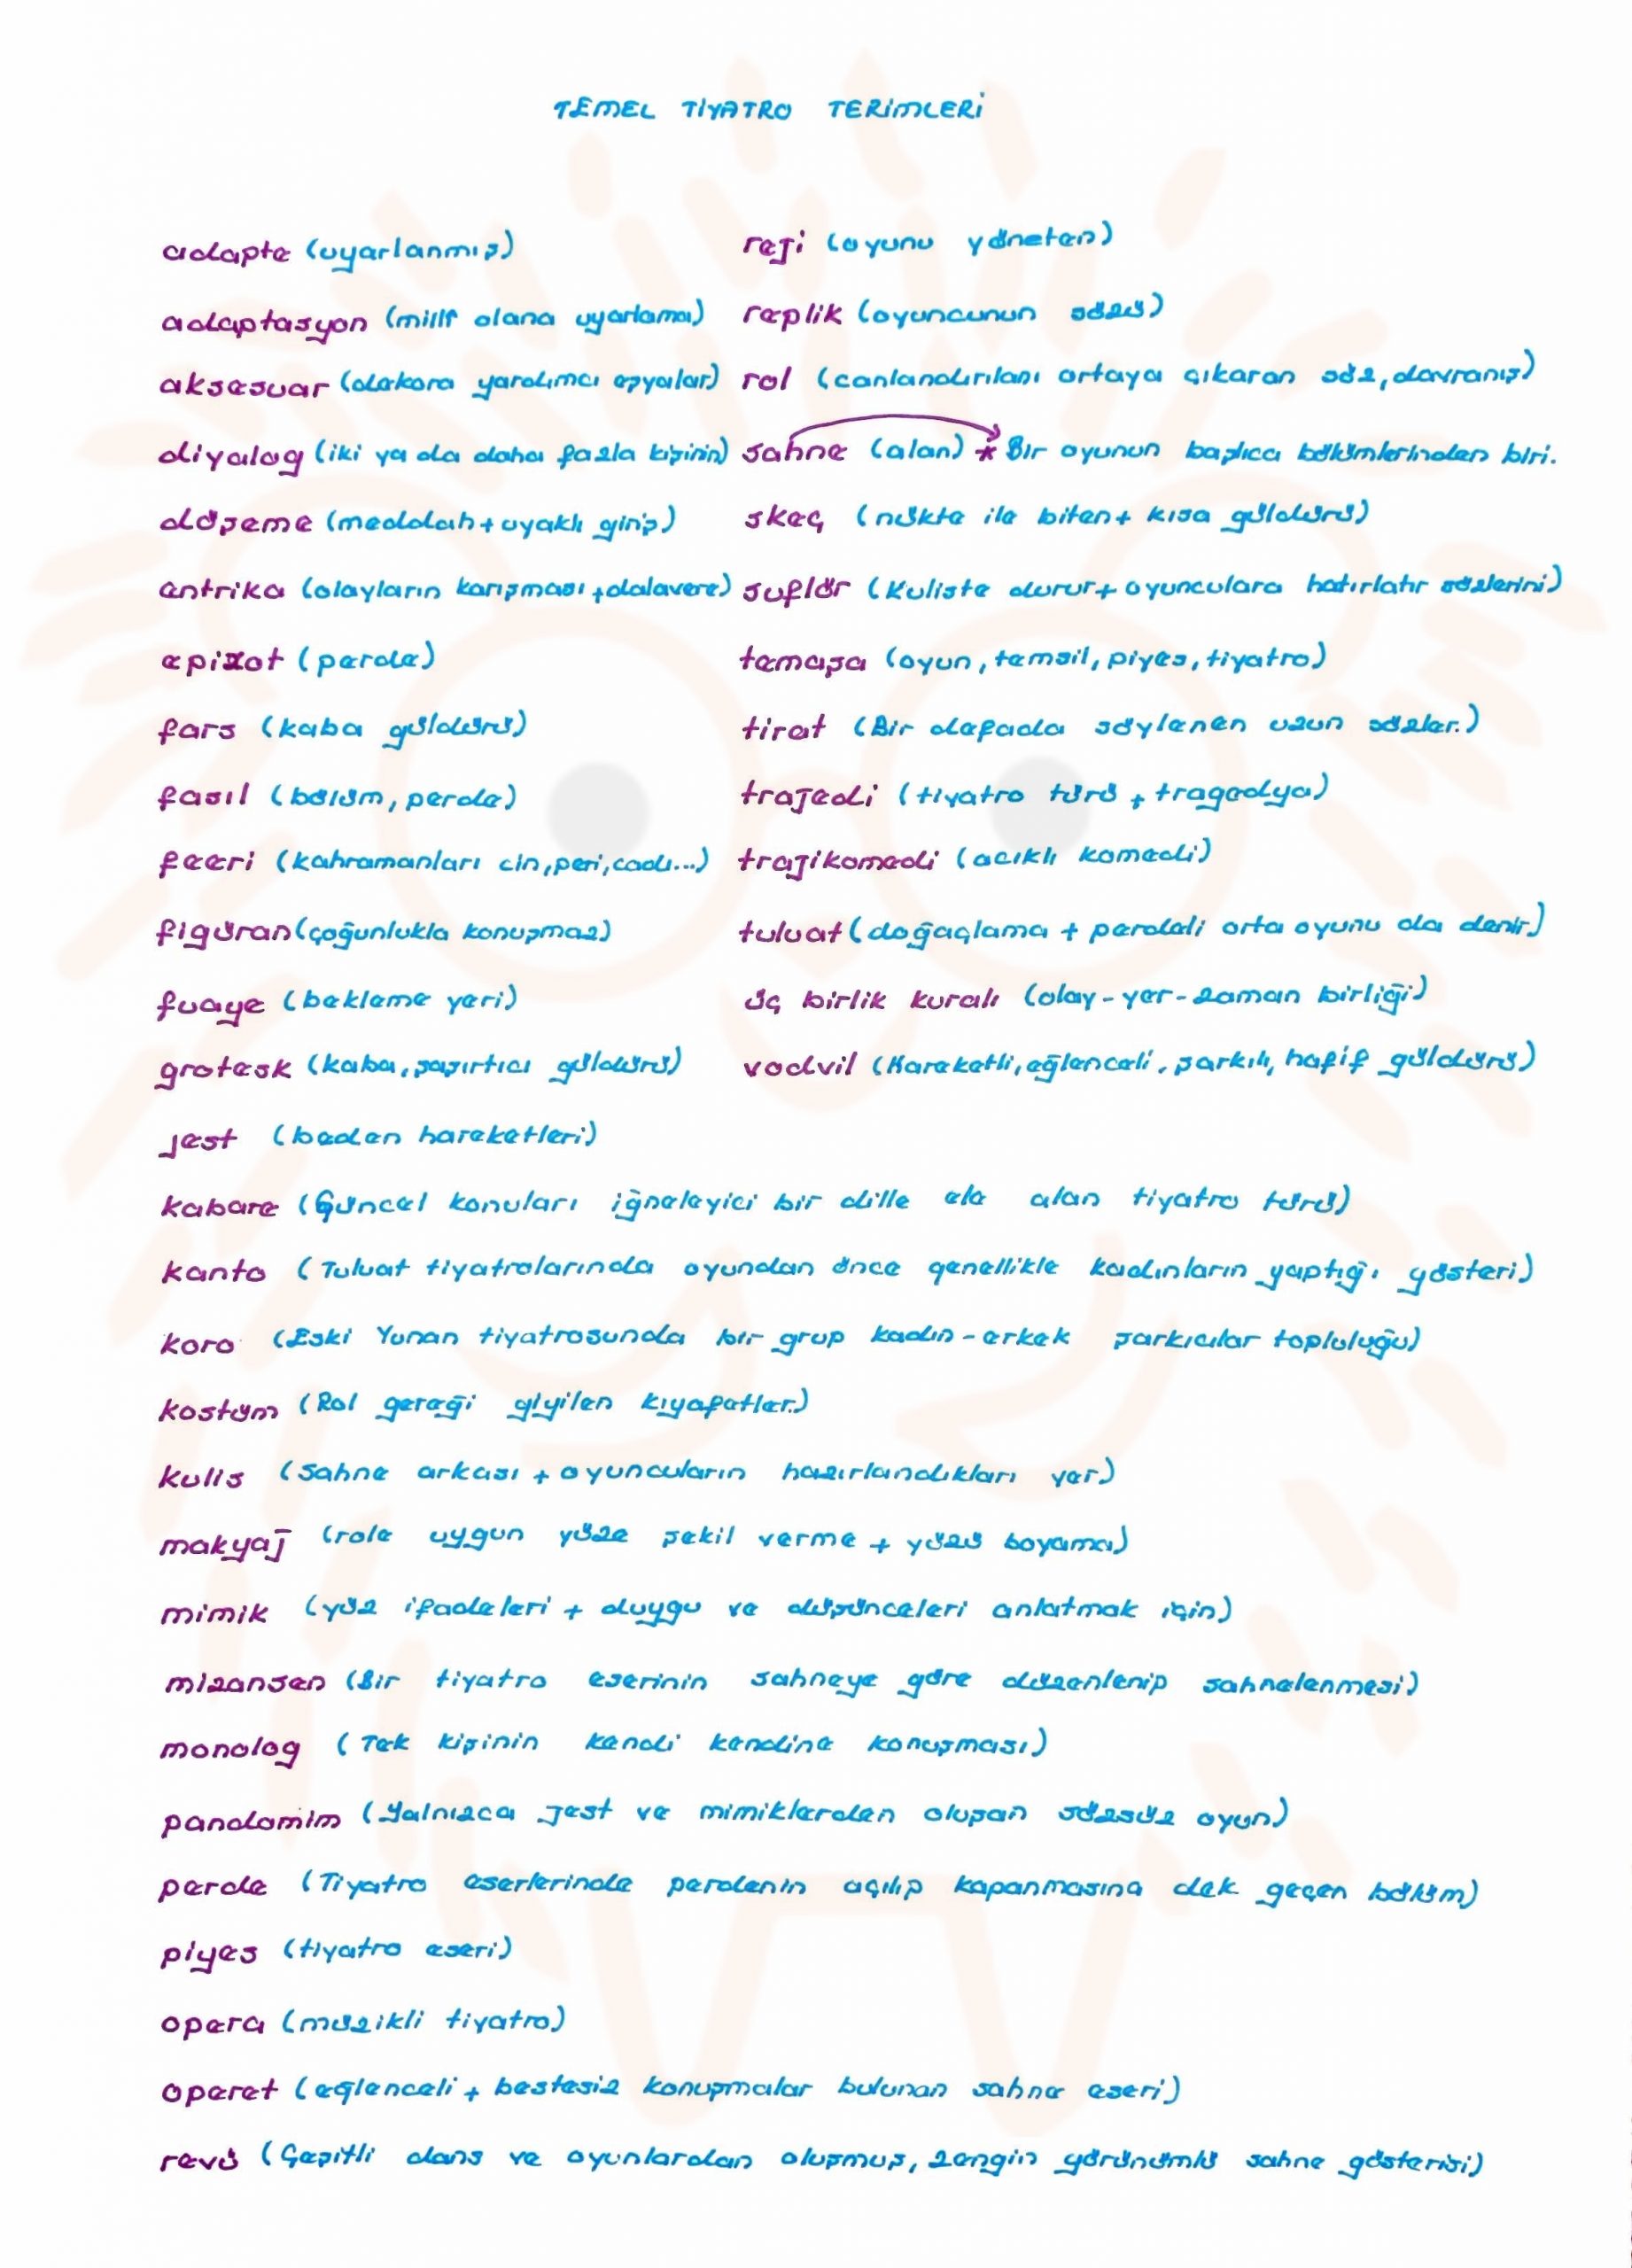 TEMEL TİYATRO TERİMLERİ
adapte (uyarlanmış)
adaptasyon (millî olana uyarlama)
aksesuar (dekora yardımcı eşyalar)
diyalog (iki ya da daha fazla kişinin)
döşeme (meddah + uyaklı giriş)
entrika (olayların karışması + dalavere)
epizot (perde)
fars (kaba güldürü)
fasıl (bölüm, perde)
feeri (kahramanları cin, peri, cadı...)
figüran (çoğunlukla konuşmaz)
fuaye (bekleme yeri)
grotesk (kaba, şaşırtıcı güldürü)
jest (beden hareketleri)
kabare (Güncel konuları iğneleyici bir dille ele alan tiyatro türü)
kanto (Tuluat tiyatrolarında oyundan önce genellikle kadınların yaptığı gösteri)
koro (Eski Yunan tiyatrosunda bir grup kadın-erkek şarkıcılar topluluğu)
kostüm (Rol gereği giyilen kıyafetler.)
kulis (Sahne arkası + oyuncuların hazırlandıkları yer)
makyaj (role uygun yüze şekil verme + yüzü boyama)
mimik (yüz ifadeleri + duygu ve düşünceleri anlatmak için)
mizansen (Bir tiyatro eserinin sahneye göre düzenlenip sahnelenmesi)
monolog (Tek kişinin kendi kendine konuşması)
pandomim (Yalnızca jest ve mimiklerden oluşan sözsüz oyun)
perde (Tiyatro eserlerinde perdenin açılıp kapanmasına dek geçen bölüm)
piyes (tiyatro eseri)
opera (müzikli tiyatro)
operet (eğlenceli + bestesiz konuşmalar bulunan sahne eseri)
revü (Çeşitli dans ve oyunlardan oluşmuş, zengin görünümlü sahne gösterisi)
reji (oyunu yöneten)
replik (oyuncunun sözü)
rol (canlandırılanı ortaya çıkaran söz, davranış)
sahne (alan) * Bir oyunun başlıca bölümlerinden biri.
skeç (nükte ile biten + kısa güldürü)
suflör (Kuliste durur + oyunculara hatırlatır sözlerini)
temaşa (oyun, temsil, piyes, tiyatro)
tirat (Bir defada söylenen uzun sözler.)
trajedi (tiyatro türü + tragedya)
trajikomedi (acıklı komedi)
tuluat (doğaçlama + perdeli orta oyunu da denir)
üç birlik kuralı (olay-yer-zaman birliği)
vodvil (Hareketli, eğlenceli, şarkılı, hafif güldürü)